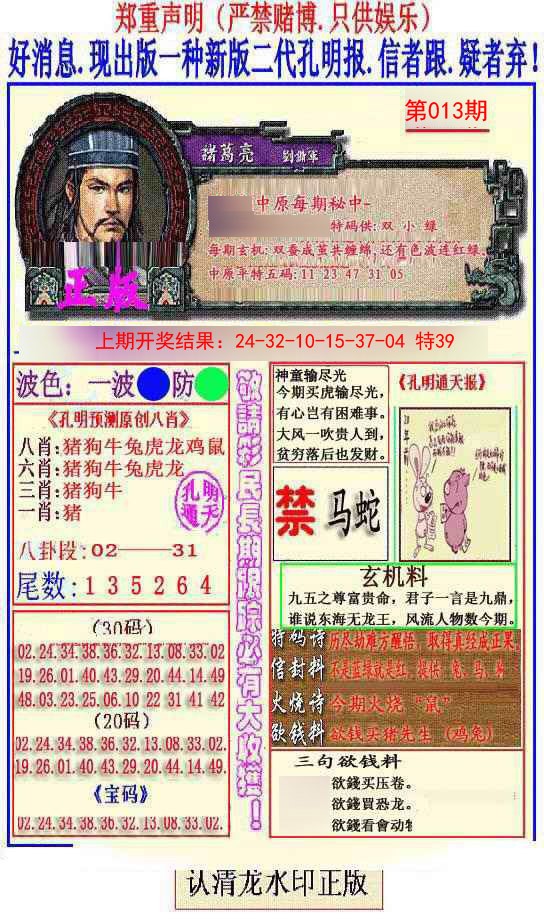 郑重声明（严禁赌博.只供娱乐）
好消息.现出版一种新版二代孔明报.信者跟.疑者弃!
第013期
諸葛亮
中原每期秘中-
特码供: 双 小 绿
每期玄机: 双蚕成茧共缠绵,还有色波连红绿.
中原平特五码: 11 23 47 31 05
正版
上期开奖结果：24-32-10-15-37-04 特39
波色：一波 防
《孔明预测原创八肖》
八肖:猪狗牛兔虎龙鸡鼠
六肖:猪狗牛兔虎龙
三肖:猪狗牛
一肖:猪
孔明
通天
八卦段:02——31
尾数:135264
(30码)
02.24.34.38.36.32.13.08.33.02
19.26.01.40.43.29.20.44.14.49
48.03.23.25.06.10 22 31 41 42
(20码)
02.24.34.38.36.32.13.08.33.02.
19.26.01.40.43.29.20.44.14.49.
《宝码》
02.24.34.38.36.32.13.08.33.02.
敬請彩民長期跟踪必有大收獲！
神童输尽光
今期买虎输尽光，
有心岂有困难事。
大风一吹贵人到，
贫穷落后也发财。
《孔明通天报》
禁 马蛇
玄机料
九五之尊富贵命，君子一言是九鼎，
谁说东海无龙王，风流人物数今期。
特码诗 历尽劫难方醒悟，取得真经成正果
信封料 不是蓝绿就是红，提供：兔、马、
火烧诗 今期火烧“鼠”
欲钱料 欲钱买猪先生（鸡兔）
三句欲钱料
欲錢买压卷。
欲錢買恐龙。
欲錢看會动
认清龙水印正版